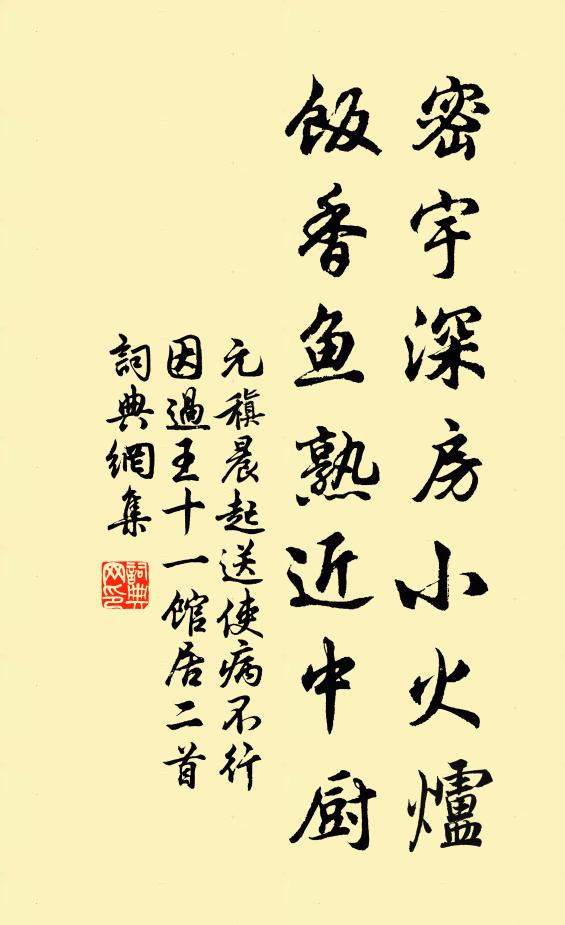 密宇深房小火爐
飯香魚熟近中厨
元稹晨起送使病不行
因過王十一館居二首
詞典網集
詞典
网印